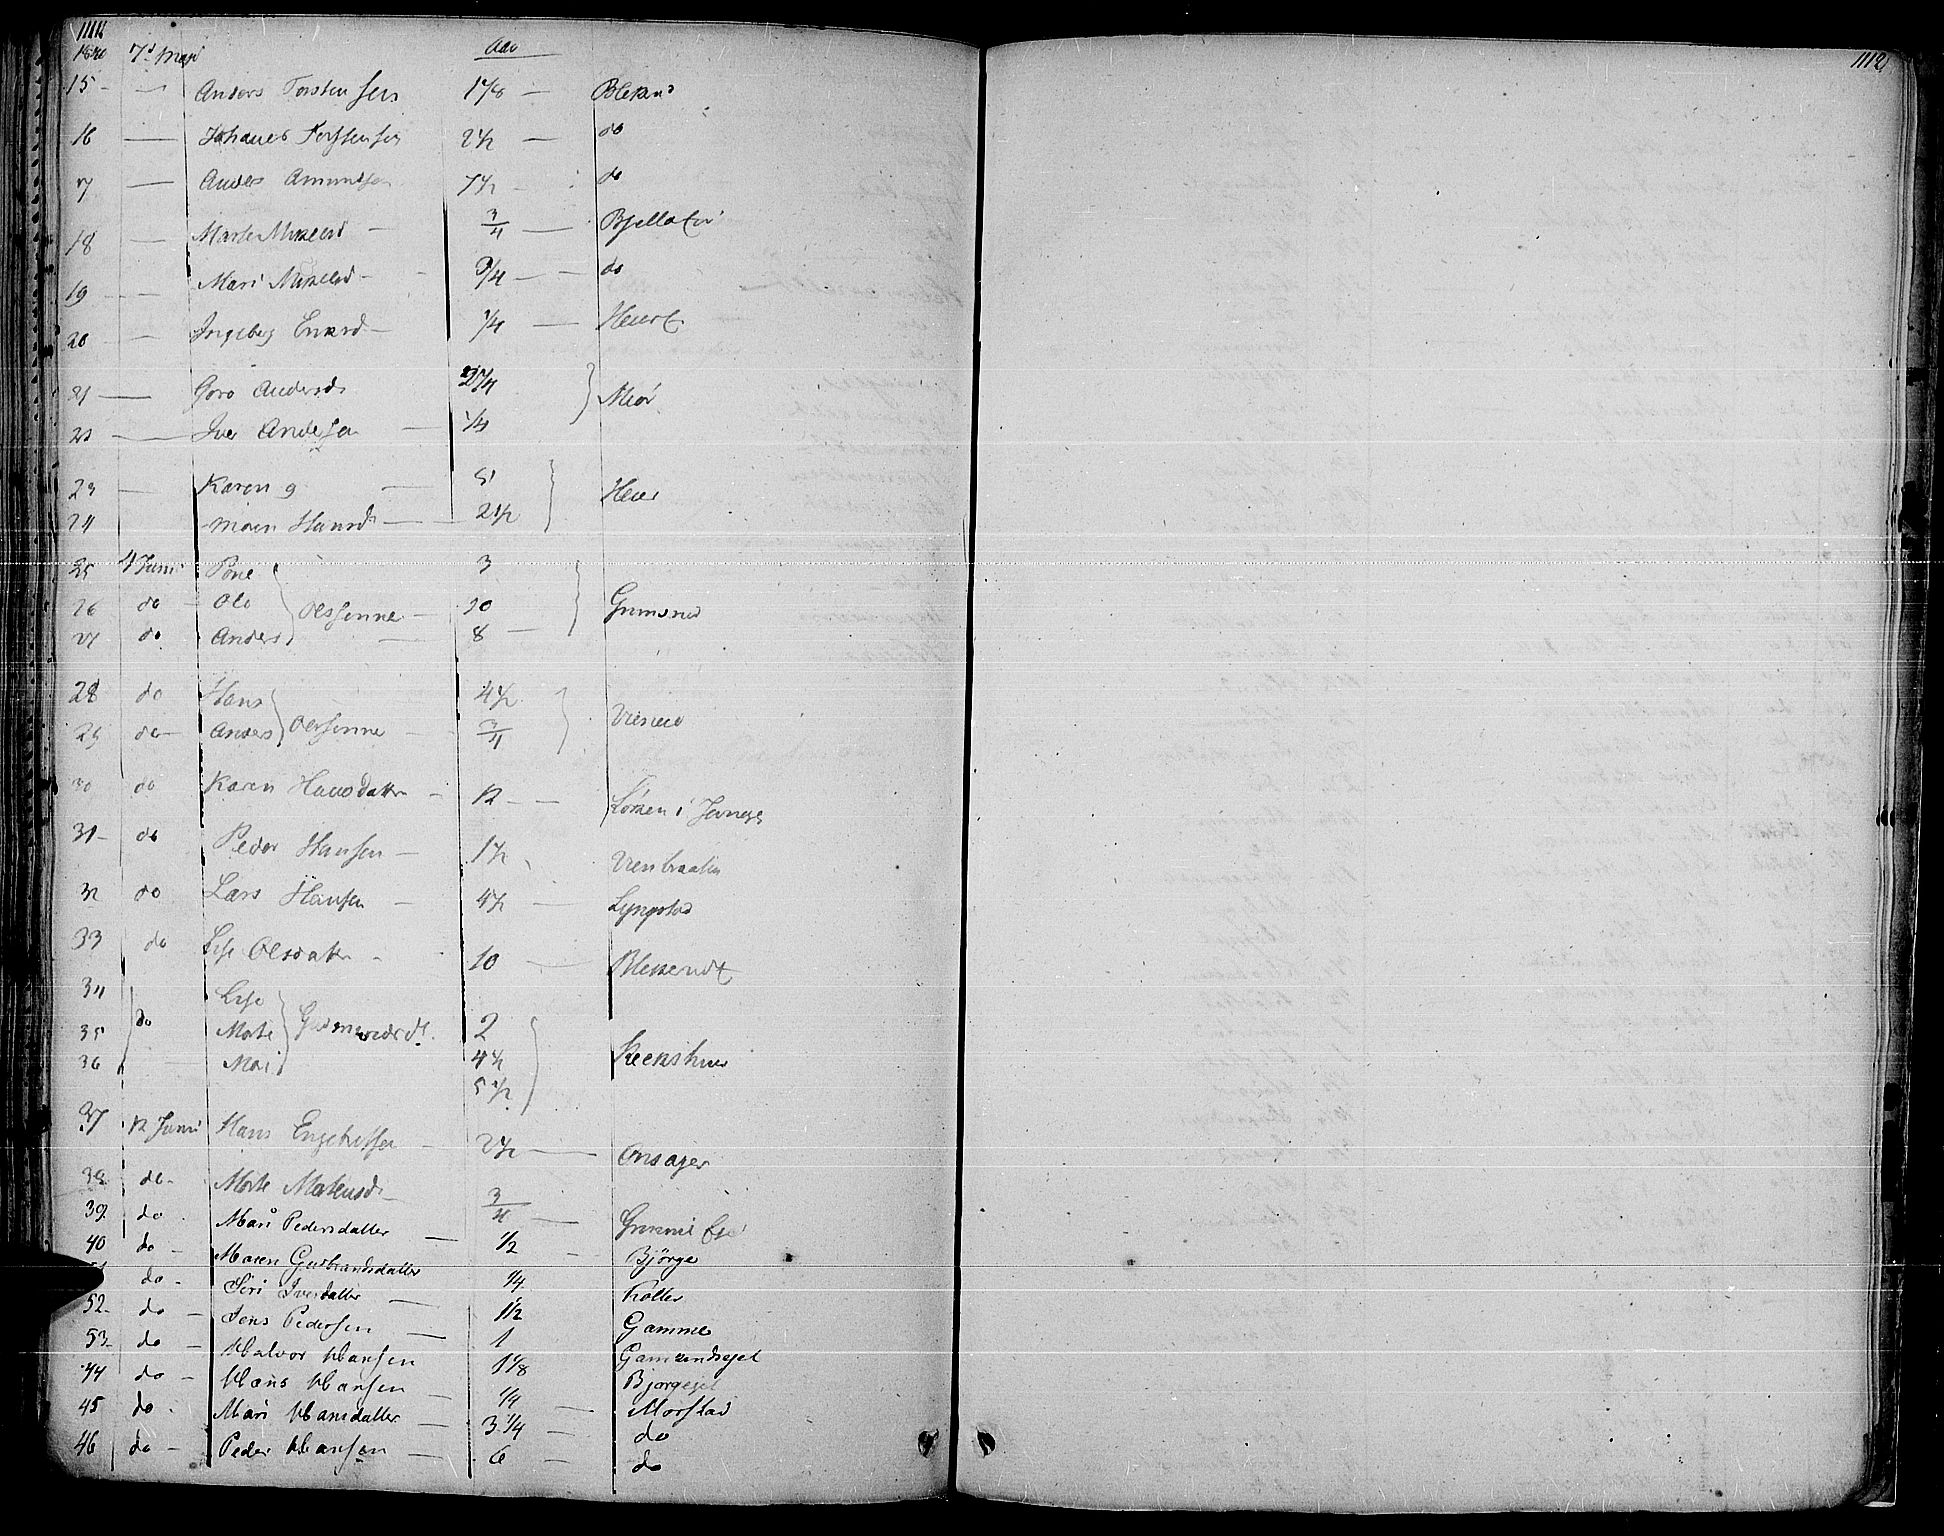 1111
1840 7d Maji Aar
15 - — Anders Torstensen 1 1/8 — Blekrud
16 — Johanes Torstensen 2 1/2 — do
17 — Anders Amundsen 7 1/2 - do
18 — Marte Mikelsd — 3/4 —
19 — Mari Mikelsd - 3/4 — do
20 — Ingeborg — 1/4 —
21 — Goro Andersd Meør
22 — Iver Andersen — 1/4
23 — Karen og — 5 Heier
24 Maren Hansd — 2 1/2
25 4 Juni Pone 3
26 do - Ole Olssønne — 10 Grimsrud
27 do Anders — 8 —
28 do Hans 4 1/2
29 do - Anders Olssønne — 3/4
30 do Karen Hansdatter — 12 - - i Jevnager
31 - do Peder Hansen — 1 1/2 Vienbraaten
32 do Lars Hansen — 4 1/2 — Lyngstad
33 do Lise Olsdatter - 10 — Blekerudt
34 Lise
35 do Marte Gudmundsdt. 2
36 Mari 4 1/2
5 1/2
37 12 Juni Hans Engebretsen — 2 1/2 — Onsager
38 do - Marte — 3/4 —
39 do Mari Pedersdatter — 1/2
40 do - Maren Gulbrandsdatter — 1/4 Bjørge
do - Siri Iversdatter — 1 1/2 Koller
52 - do — Jens Pedersen — 1 Gamme
53 - do - Halvor Hansen 1 1/8
44 do - Hans Hansen — 1/4 — Bjørgeejet
45 do - Mari Hansdatter — 3 1/4 — Morstad
46 do - Peder Hansen — 6 - do
do
1112